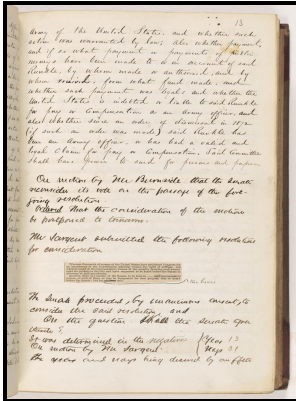 13
Army of the United States, and whether such
action was warranted by law; also whether payment,
and if so what payment or payments of public
moneys have been made to or on account of said
Runkle, by whom made or authorized, and by
whom received, from what fund made, and
whether such payment was legal; and whether the
United States is indebted or liable to said Runkle
for pay or compensation as an Army officer, and
also whether since an order of dismissal in 1872
(if such an order was made) said Runkle has
been an Army officer, or has had a valid and
legal claim for pay or compensation. Said Committee
shall have power to send for persons and papers
On motion by Mr. Burnside that the Senate
reconsider its vote on the passage of the fore-
going resolution
Ordered That the consideration of the motion
be postponed to tomorrow.
Mr Sargent submitted the following resolution
for consideration
The Senate proceeded, by unanimous consent, to
consider the said resolution, and
On the question Shall the Senate agree
thereto?
It was determined in the negative Yeas 13
On motion by Mr Sargent Nays 31
The yeas and nays being desired by one fifth